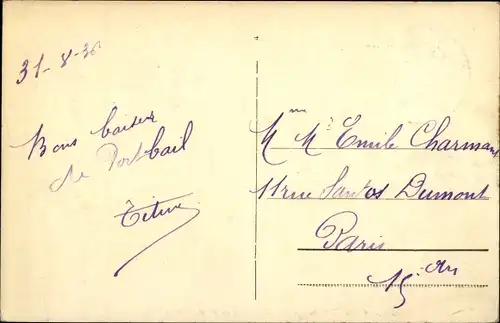 31-8-36
Bons baisers
de Portbail
Titine
Mme M Emile Charmant
11 rue Santos Dumont
Paris
15